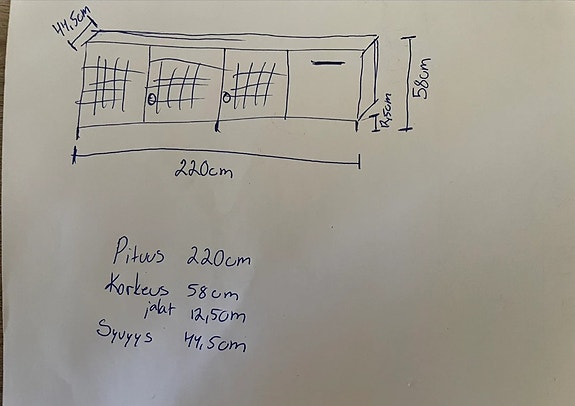 44,5cm
58cm
12,5cm
220cm
Pituus 220cm
Korkeus 58cm
jalat 12,5cm
Syvyys 44,5cm